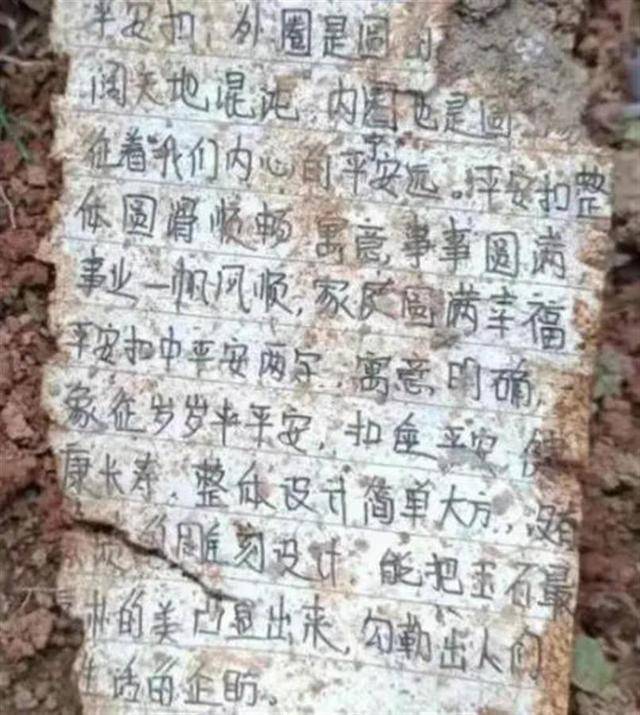 平安扣，外圈是圆
阔天地混沌，内圈也是圆
征着我们内心的平安宁远。平安扣整
体圆滑顺畅 寓意事事圆满
事业一帆风顺，家民圆满幸福
平安扣中平安两字，寓意明确，
象征岁岁平平安，扣座平安
康长寿，整体设计简单大方，没有
雕刻设计 能把玉石最
朴的美凸显出来，勾勒出人们
生活的企盼。